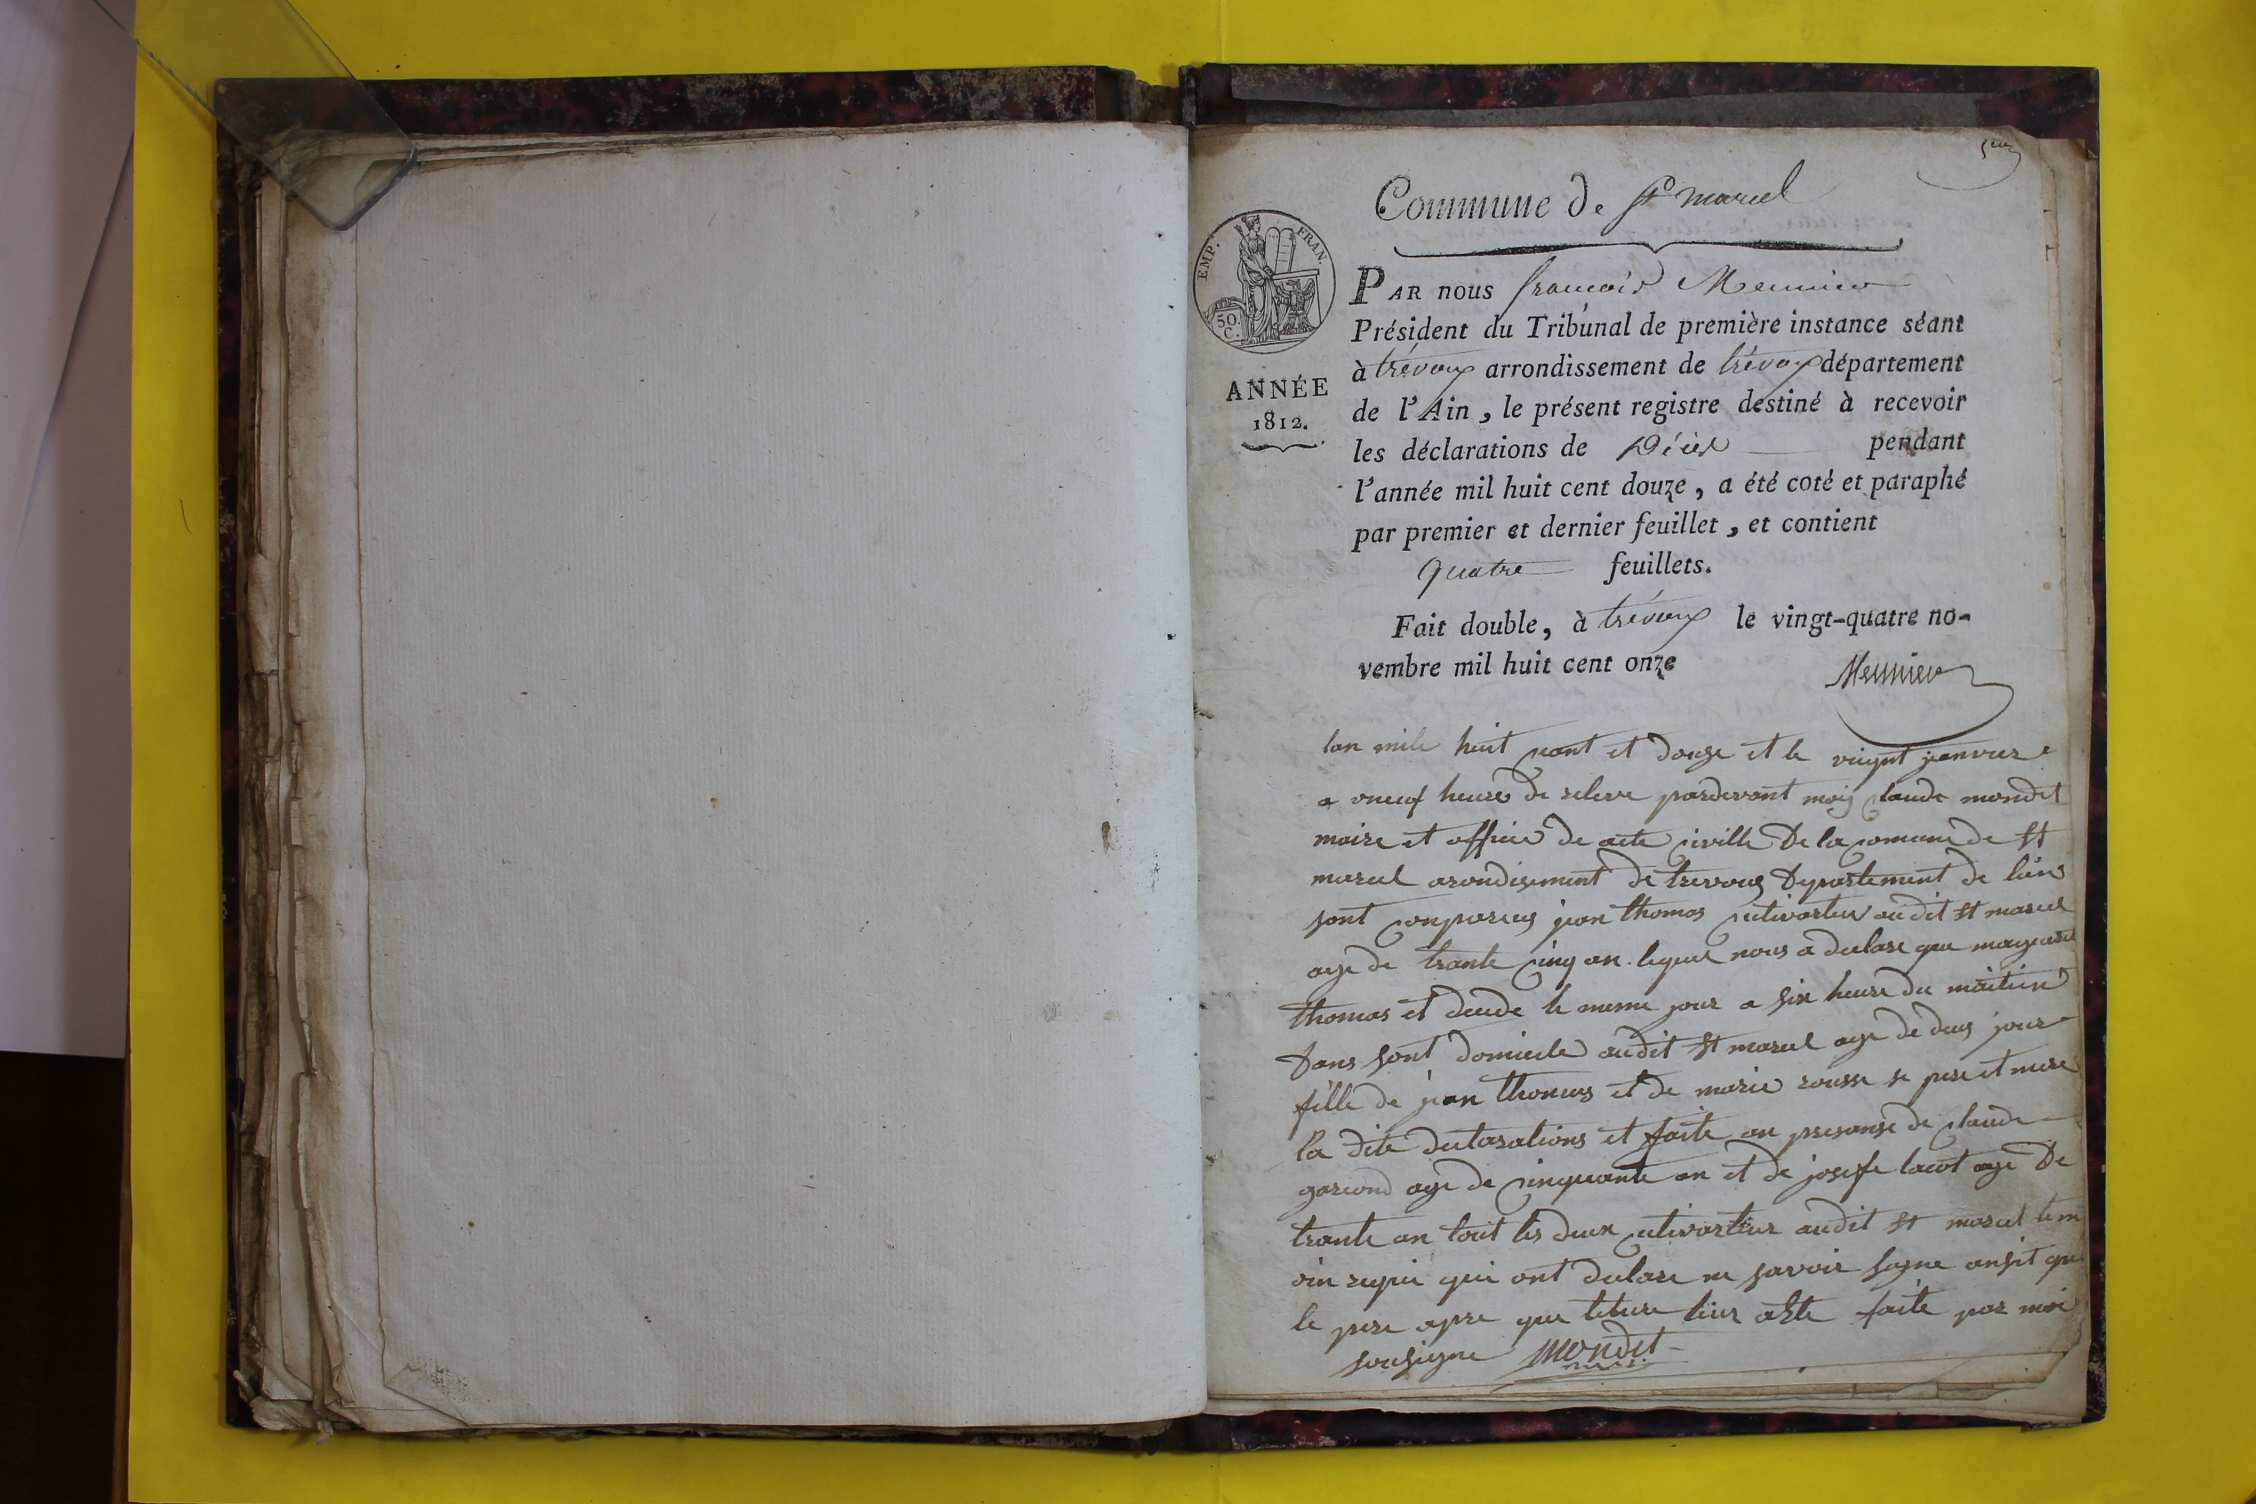 Commune de St marcel
EMP. FRAN.
50.
C.
ANNÉE
1812.
PAR nous francois Meunier
Président du Tribunal de première instance séant
à trévoux arrondissement de trévoux département
de l'Ain, le présent registre destiné à recevoir
les déclarations de Décès pendant
l'année mil huit cent douze, a été coté et paraphé
par premier et dernier feuillet, et contient
quatre feuillets.
Fait double, à trévoux le vingt-quatre no-
vembre mil huit cent onze
Meunier
lan mile huit cant et douze et le vingt janvier
a heure de releve pardevant moy claude mondet
maire et officie de acte civille De la comune de st
marcel arondisement de trevoux Departement de lain
sont conparus jean thomas cultivateur audit st marcel
age de trante cinq an lequel nous a declare que
thomas et decede le meme jour a six heure du maitin
Dans sont domicile audit st marcel age de deus jour
fille de jean thomas et de marie rousse se pere et mere
la dite declarations et faite an presanse de claude
age de cinquante an et de josefe lacot age De
trante an tout les deux cultivateur audit st marcel tem
oin requi qui ont declare ne savoir signe ansit que
le pere apre que leture leur faite par moi
sousigne mondet